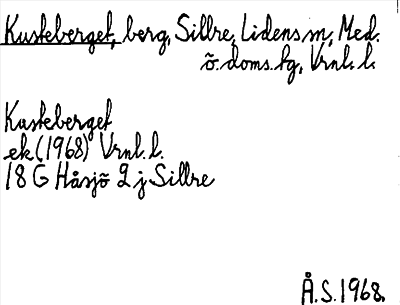 Kusteberget, berg, Sillre, Lidens sn, Med.
ö. doms. tg, Vrnl. l.
Kusteberget
ek (1968) Vrnl. l.
18 G Håsjö 2 j Sillre
Å.S. 1968.